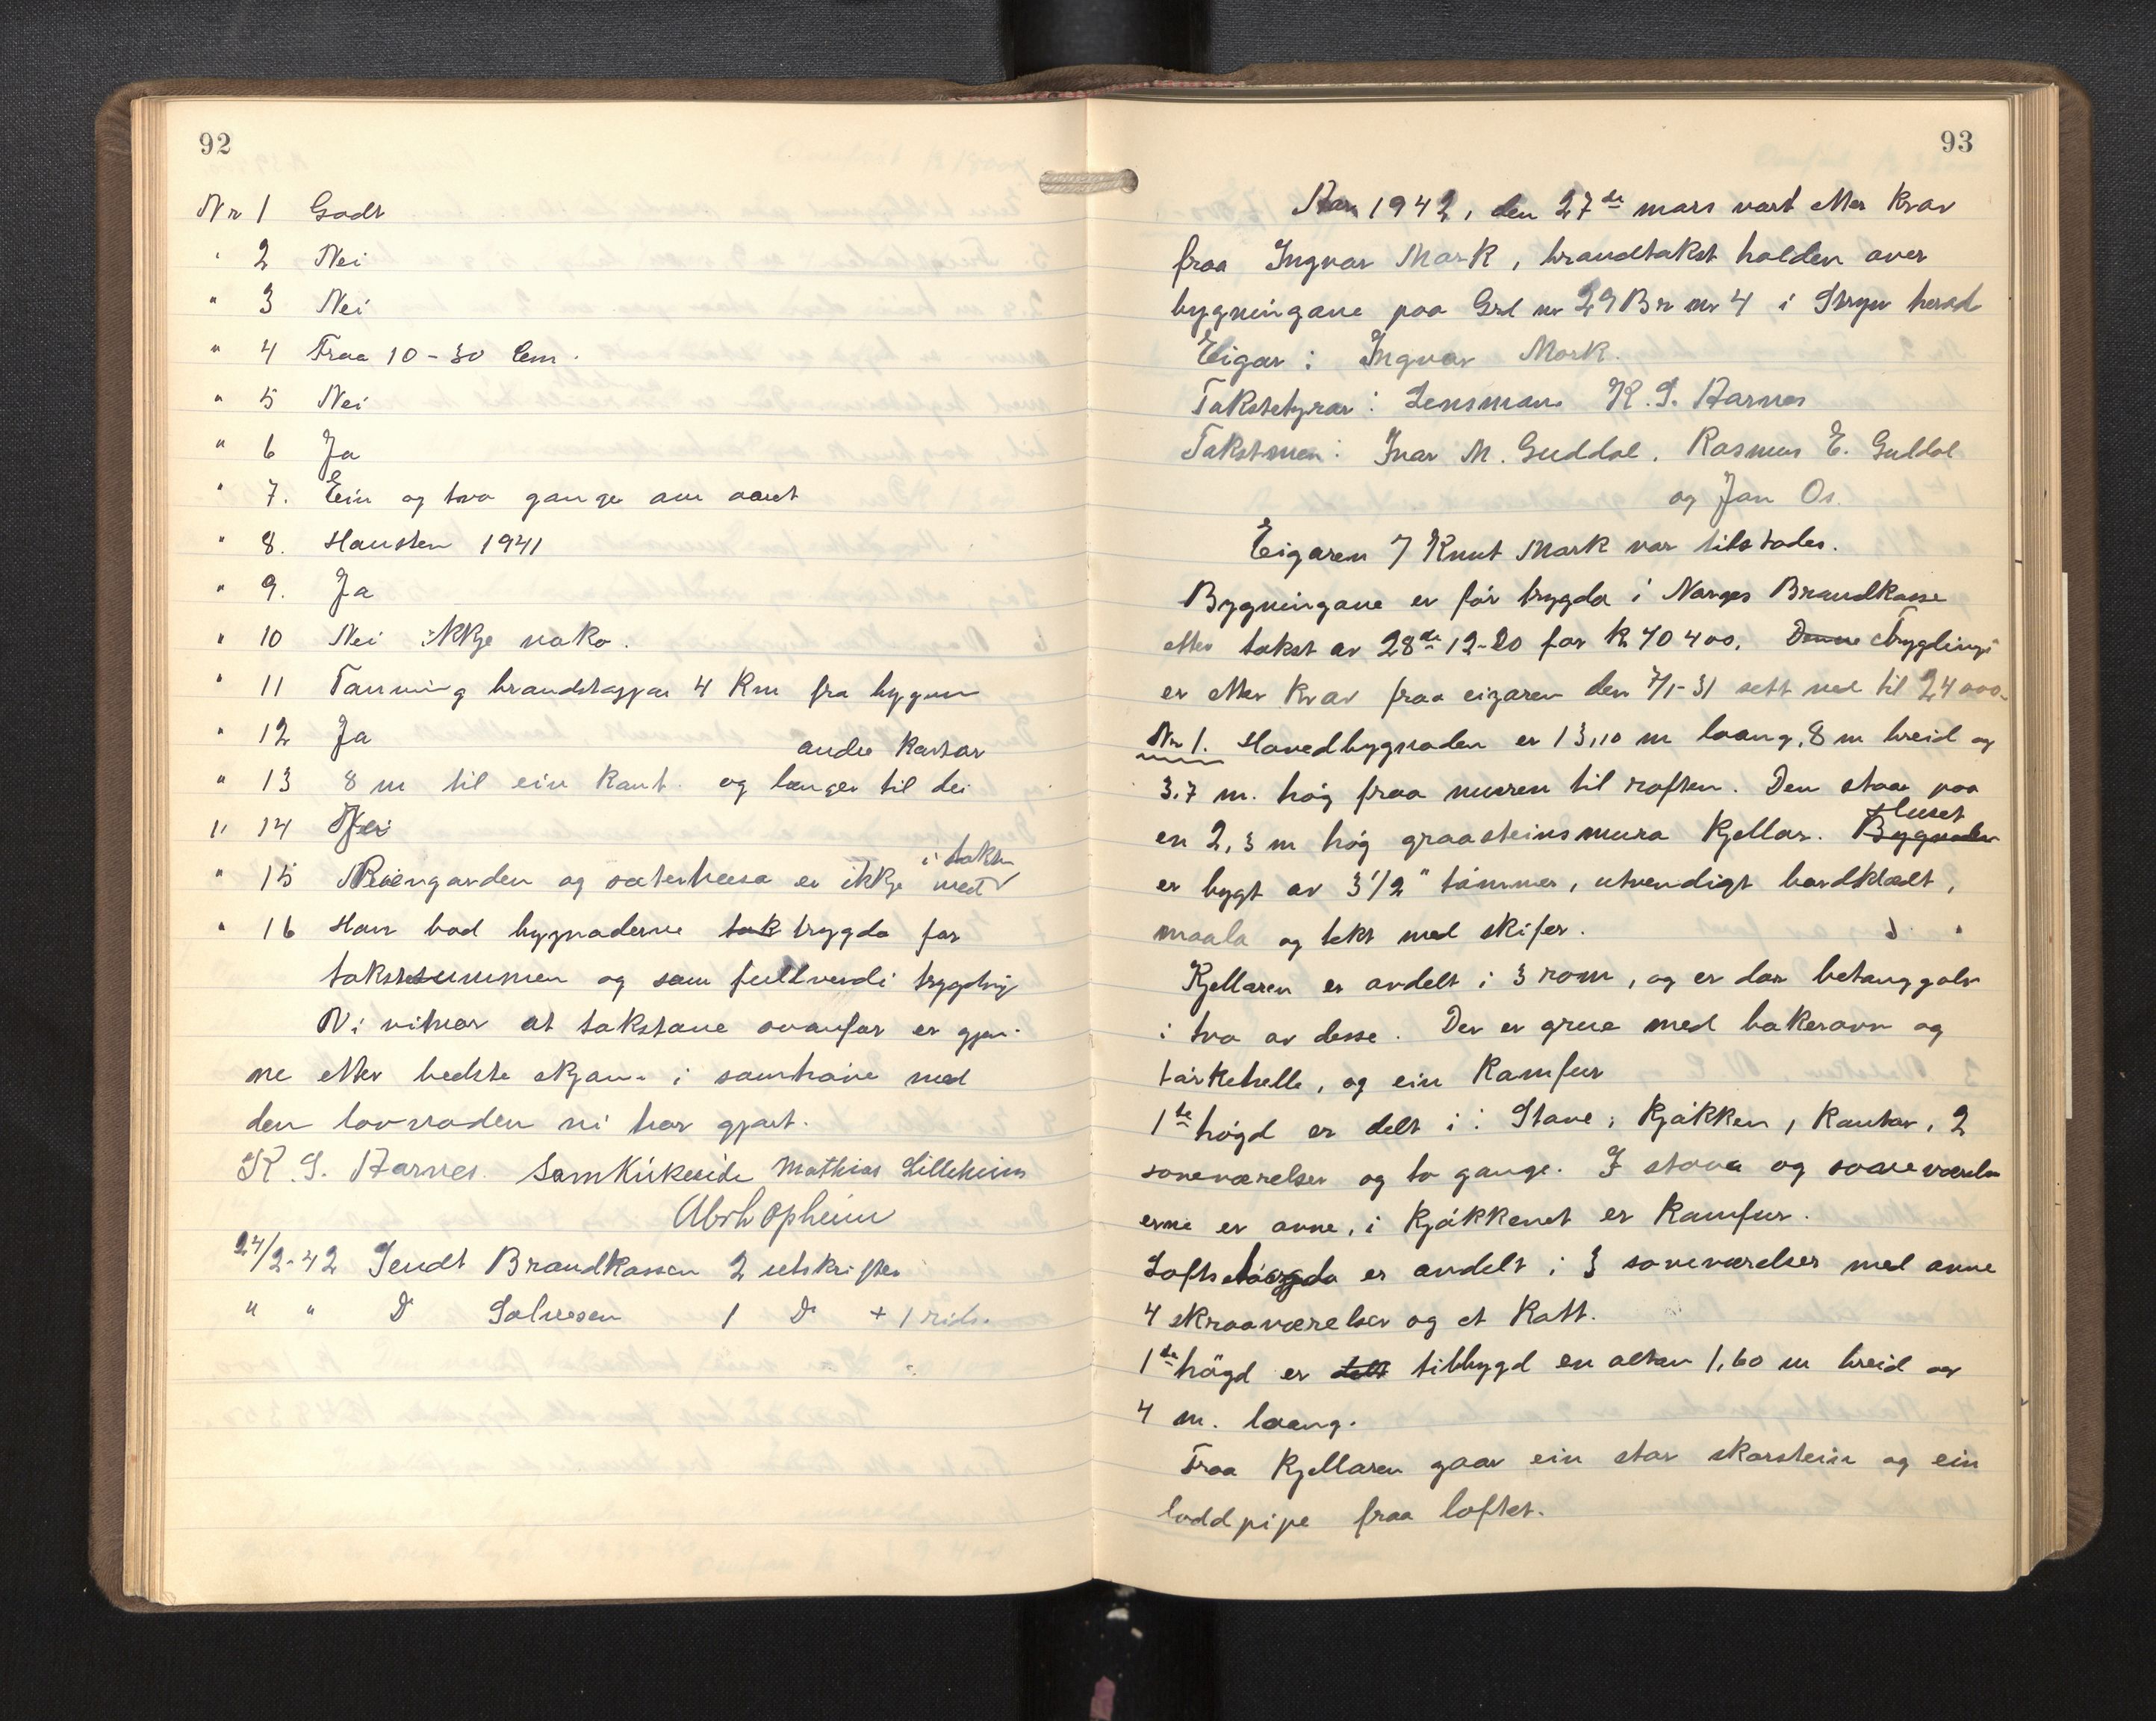 92
Nr 1 Godt
" 2 Nei
" 3 Nei
" 4 Fraa 10-30 Cm.
" 5 Nei
" 6 Ja
" 7. Ein og tvo gange om aaret
" 8. Hausten 1941
" 9. Ja
" 10 Nei ikkje noko.
" 11 Tonning brandstasjon 4 Km fra bygnn
" 12 Ja
andre kantar
" 13 8 m til ein kant. og lenger til dei
" 14 Nei
i taksten
" 15 og sæterhusa er ikkje med
" 16 Han bad bygnaderne tak trygda for
takstsummen og som fullverdi trygding
Vi vitnar at takstane ovanfor er gjor-
ne etter bedste skjøn i samhøve med
den lovnaden vi har gjort.
K. S. Aarnes. Sam Kirkeeide Mathias Lilleheim
Abrh Opheim
24/2-42 Sendt Brandkassen 2 utskrifter
" " Do Solvesen 1 Do + 1 rids.
93
Aar 1942, den 27de mars vart etter krav
fraa Ingvar Mork, brandtakst halden over
bygningane paa Grd nr 29 Br nr 4 i Stryn herad
Eigar: Ingvar Mork.
Takstetyrar: Lensman K. S. Aarnes
Takstmen: Ivar M. Guddal, Rasmus E. Guddal
og Jon Os.
Eigaren v/ Knut Mork var tilstades.
Bygningane er før trygda i Norges Brandkasse
etter takst av 28de 12-20 for kr 40400. Denne Trygding
er etter krav fraa eigaren den 7/1-31 sett ned til 24000-
Nr 1. Hovedbygnaden er 13,10 m laang, 8 m breid og
3,7 m. høg fraa muren til raften. Den staar paa
Huset
en 2,3 m høg graasteinsmura kjellar. Bygnaden
er bygt av 3 1/2" tømmer, utvendigt bordklædt,
maala og tekt med skifer.
Kjellaren er avdelt i 3 rom, og er dar betonggolv
i tvo av desse. Der er grue med bakerovn og
tørkehelle, og ein kamfur
1ste høgd er delt i: Stove, kjøkken, kontor, 2
soveværelser og to gange. I stova og soveværels
erne er ovne, i kjøkkenet er kamfur.
Loftshøgda er avdelt i 3 soveværelser med ovne
4 skraaværelser og et kott.
1ste høgd er delt tilbygd en altan 1,60 m breid og
4 m. laang.
Fraa kjellaren gaar ein stor skorstein og ein
loddpipe fraa loftet.